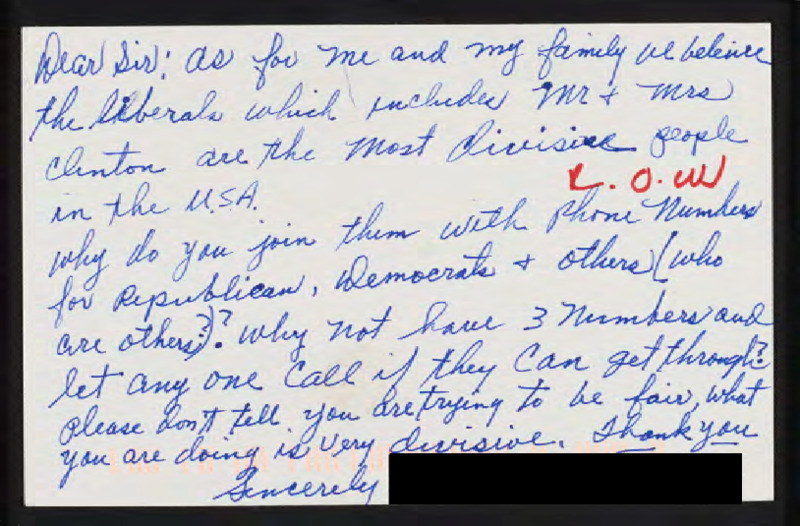 Dear Sir: as for me and my family we beleive
the liberals which includes Mr & Mrs
Clinton are the most divisive people
in the U.S.A.
L.O.W
why do you join them with phone numbers
for Republican, Democrats & others (who
are others?)? why not have 3 numbers and
let any one call if they can get through?
please don't tell you are trying to be fair, what
you are doing is very divisive. Thank you
Sincerely